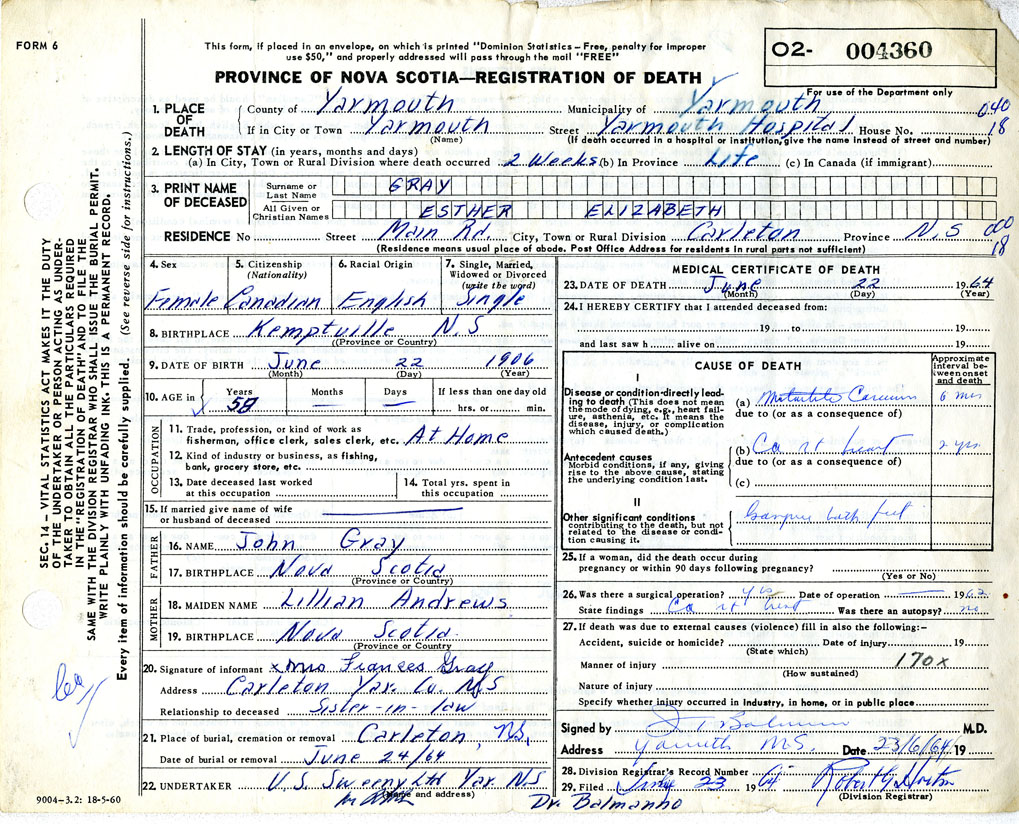 FORM 6
This form, if placed in an envelope, on which is printed "Dominion Statistics – Free, penalty for improper
use $50," and properly addressed will pass through the mail "FREE"
PROVINCE OF NOVA SCOTIA—REGISTRATION OF DEATH
O2- 004360
For use of the Department only
1. PLACE OF DEATH County of Yarmouth Municipality of Yarmouth 040
If in City or Town Yarmouth Street Yarmouth Hospital House No. 18
(Name) (If death occurred in a hospital or institution, give the name instead of street and number)
2. LENGTH OF STAY (in years, months and days)
(a) In City, Town or Rural Division where death occurred 2 Weeks (b) In Province Life (c) In Canada (if immigrant)
3. PRINT NAME OF DECEASED Surname or Last Name GRAY
All Given or Christian Names ESTHER ELIZABETH
RESIDENCE No Street Main Rd. City, Town or Rural Division Carleton Province N.S 000
(Residence means usual place of abode. Post Office Address for residents in rural parts not sufficient) 18
SEC. 14 – VITAL STATISTICS ACT MAKES IT THE DUTY
OF THE UNDERTAKER OR PERSON ACTING AS UNDER-
TAKER TO OBTAIN ALL THE PARTICULARS REQUIRED
IN THE "REGISTRATION OF DEATH" AND TO FILE THE
SAME WITH THE DIVISION REGISTRAR WHO SHALL ISSUE THE BURIAL PERMIT.
WRITE PLAINLY WITH UNFADING INK. THIS IS A PERMANENT RECORD.
Every item of information should be carefully supplied. (See reverse side for instructions.)
4. Sex Female
5. Citizenship (Nationality) Canadian
6. Racial Origin English
7. Single, Married, Widowed or Divorced (write the word) Single
8. BIRTHPLACE Kemptville N.S
(Province or Country)
9. DATE OF BIRTH June 22 1906
(Month) (Day) (Year)
10. AGE in Years 58 Months — Days — If less than one day old
hrs. or min.
OCCUPATION
11. Trade, profession, or kind of work as
fisherman, office clerk, sales clerk, etc. At Home
12. Kind of industry or business, as fishing,
bank, grocery store, etc.
13. Date deceased last worked
at this occupation
14. Total yrs. spent in
this occupation
15. If married give name of wife
or husband of deceased
FATHER
16. NAME John Gray
17. BIRTHPLACE Nova Scotia
(Province or Country)
MOTHER
18. MAIDEN NAME Lillian Andrews
19. BIRTHPLACE Nova Scotia
(Province or Country)
20. Signature of informant x Mrs Frances Gray
Address Carleton Yar. Co. N.S
Relationship to deceased Sister-in-law
21. Place of burial, cremation or removal Carleton, N.S.
Date of burial or removal June 24/64
22. UNDERTAKER U.S. Sweeny Ltd Yar. N.S
(Name and address)
9004–3.2: 18-5-60
MEDICAL CERTIFICATE OF DEATH
23. DATE OF DEATH June 22 1964
(Month) (Day) (Year)
24. I HEREBY CERTIFY that I attended deceased from:
19 to 19
and last saw h alive on 19
CAUSE OF DEATH
Approximate interval between onset and death
I
Disease or condition directly lead-
ing to death (This does not mean
the mode of dying, e.g., heart fail-
ure, asthenia, etc. It means the
disease, injury, or complication
which caused death.)
(a) 6 mos
due to (or as a consequence of)
Antecedent causes
Morbid conditions, if any, giving
rise to the above cause, stating
the underlying condition last.
(b) Ca rt breast 2 yrs
due to (or as a consequence of)
(c)
II
Other significant conditions
contributing to the death, but not
related to the disease or condi-
tion causing it.
Gangrene both feet
25. If a woman, did the death occur during
pregnancy or within 90 days following pregnancy?
(Yes or No)
26. Was there a surgical operation? yes Date of operation — 1962
State findings Ca rt breast Was there an autopsy? no
27. If death was due to external causes (violence) fill in also the following:–
Accident, suicide or homicide? Date of injury 19
(State which)
Manner of injury 170x
(How sustained)
Nature of injury
Specify whether injury occurred in industry, in home, or in public place
Signed by M.D.
Address Yarmouth N.S. Date 23/6/64 19
28. Division Registrar's Record Number 64
29. Filed June 23 1964
(Division Registrar)
Dr. Balmanno